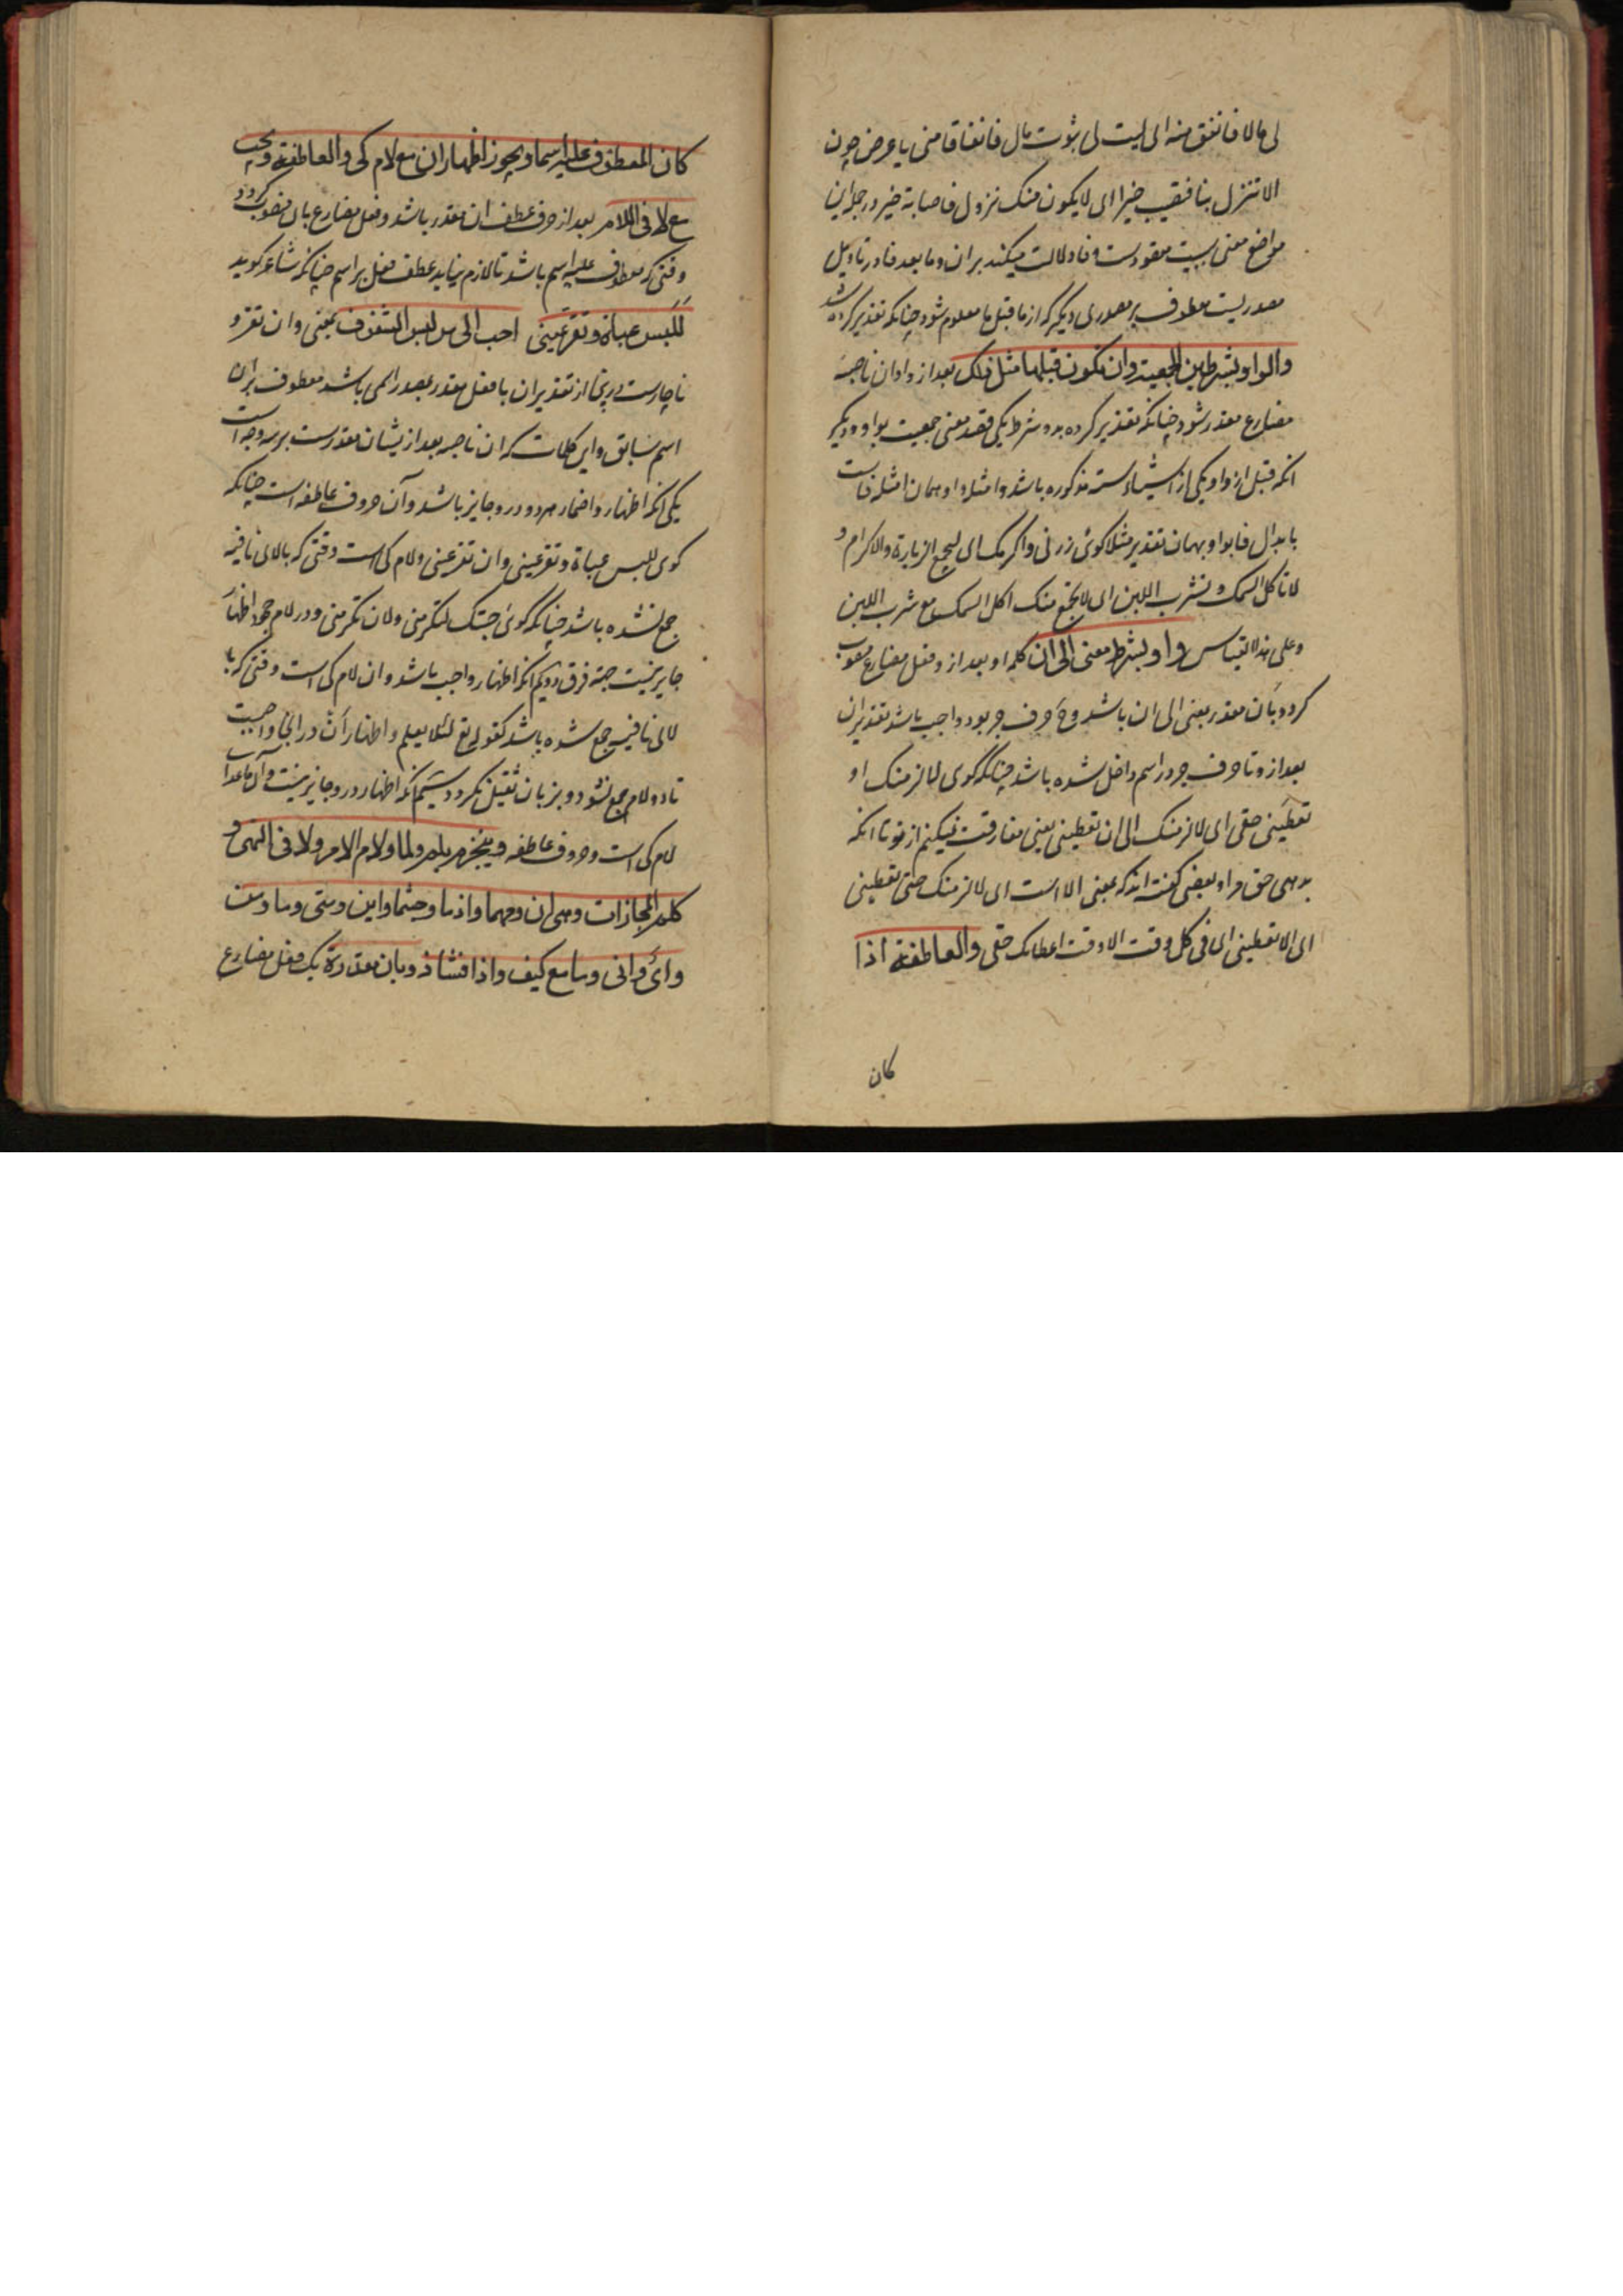 لی مالا فانفق منه ای لیت لی ثبوت مال فانفاقا منی یا عرض چون
الا تنزل بنا فتصیب خیرا ای لا یکون منک نزول فاصابة خیر و در جمله این
مواضع معنی سببیت مقصودست و فا دلالت میکند بران و ما بعد فا در تاویل
مصدریست معطوف بر مصدری دیگر که از ما قبل فا معلوم شود چنانکه تقدیر کرده شد
والواو بشرطین الجمعیة وان تکون قبلها مثل ذلک بعد از واو ان ناصبه
مضارع مقدر شود چنانکه تقدیر کرده بدو شرط یکی قصد معنی جمعیت بواو و دیگر
انکه قبل از واو یکی از اشیاء سته مذکوره باشد و امثله واو همان امثله فاست
بابدال فا بواو بهمان تقدیر مثلا کوئی زرنی واکرمک ای لیجتمع الزیارة والاکرام و
لا تاکل السمک و تشرب اللبن ای لا یجتمع منک اکل السمک مع شرب اللبن
وعلی هذا القیاس واو بشرط معنی الی ان کلمه او بعد از و فعل مضارع منصوب
کردد بان مقدر بمعنی الی ان باشد و ح حرف جر بود و واجب باشد تقدیر ان
بعد از و تا حرف جر در اسم داخل شده باشد چنانکه کوی لالزمنک او
تعطینی حقی ای لالزمنک الی ان تعطینی یعنی مفارقت نمیکنم از تو تا انکه
بدهی حق مرا و بعضی کفته اند که بمعنی الا است ای لالزمنک حتی تعطینی
ای الا تعطینی ای فی کل وقت الا وقت اعطائک حقی والعاطفة اذا
کان
کان المعطوف علیه اسما ویجوز اظهار ان مع لام کی والعاطفة ویجب
مع لا فی اللام بعد از حرف عطف ان مقدر باشد و فعل مضارع بان منصوب کردد
وقتی که معطوف علیه اسم باشد تا لازم نیاید عطف فعل بر اسم چنانکه شاعر کوید
للبس عباءة وتقر عینی احب الی من لبس الشفوف بمعنی وان تقر و
ناچارست درینجا از تقدیر ان با فعل مقدر بمصدر اسمی باشد معطوف بران
اسم سابق و این کلمات که ان ناصبه بعد از یشان مقدرست بر سه وجه است
یکی انکه اظهار و اضمار هر دو درو جایز باشد و آن حروف عاطفه است چنانکه
کوی للبس عباءة و تقر عینی و ان تقر عینی و لام کی است وقتی که بالای نافیه
جمع نشده باشد چنانکه کوئی جئتک لتکرمنی و لان تکرمنی و در لام جحد اظهار
جایز نیست جهة فرق دویم انکه اظهار واجب باشد و ان لام کی است وقتی که با
لای نافیه جمع شده باشد کقوله تع لئلا یعلم و اظهار ان درانجا واجبست
تا دو لام جمع نشود و بر زبان ثقیل نکردد سیم انکه اظهار درو جایز نیست و آن ماعدای
لام کی است و حروف عاطفه وینجزم بلم ولما ولام الامر ولا فی النهی و
کلم المجازات وهی ان ومهما واذما وحیثما واین ومتی وما ومن
وای وانی وما مع کیف واذا فشاذ وبان مقدرة یک فعل مضارع